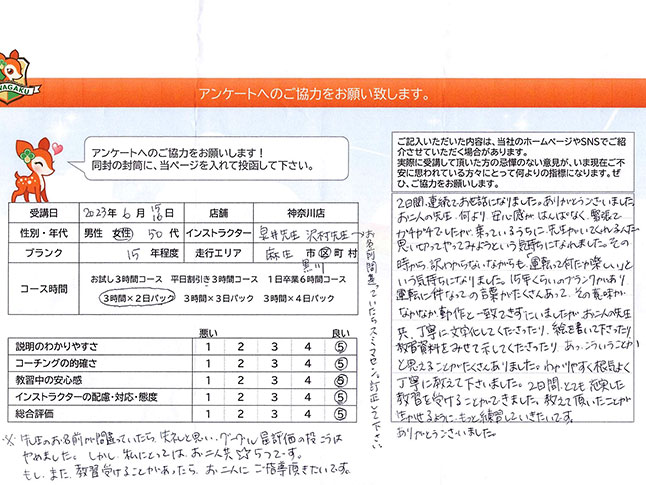 NAGAKU
アンケートへのご協力をお願い致します。
アンケートへのご協力をお願いします！
同封の封筒に、当ページを入れて投函して下さい。
受講日 2023年 6月 15 16日 店舗 神奈川店
性別・年代 男性 女性 50代 インストラクター 沢村先生
ブランク 15年程度 走行エリア 麻生 市区町村
黒川
コース時間 お試し3時間コース 平日割引き3時間コース 1日卒業6時間コース
3時間×2日パック 3時間×3日パック 3時間×4日パック
お名前間違っていたらスミマセン。訂正して下さい
悪い 良い
説明のわかりやすさ 1 2 3 4 5
コーチングの的確さ 1 2 3 4 5
教習中の安心感 1 2 3 4 5
インストラクターの配慮・対応・態度 1 2 3 4 5
総合評価 1 2 3 4 5
※ 先生のお名前が間違っていたら、失礼と思い、グーグル星評価の投こうは
やめました。しかし、私にとっては、お二人共☆5つです。
もし、また、教習受けることがあったら、お二人に ご指導頂きたいです。
ご記入いただいた内容は、当社のホームページやSNSでご紹
介させていただく場合があります。
実際に受講して頂いた方の忌憚のない意見が、いま現在ご不
安に思われている方々にとって何よりの指標になります。ぜ
ひ、ご協力をお願いします。
2日間、連続でお世話になりました。ありがとうございました。
お二人の先生、何より 安心感が はんぱなく、緊張で
ガチガチでしたが、乗っているうちに、先生がいてくれるんだ
思い切ってやってみようという気持ちになれました。その
時から、訳わからないながらも「運転って何だか楽しい」と
いう気持ちになりました。15年くらいのブランクがあり、
運転に伴なっての言葉がたくさんあって、その意味が
なかなか動作と一致できずにいましたが、お二人の先生
共、丁寧に文字化してくださったり、絵を書いて下さったり
教習資料をみせて示してくださったり、あっ、こういうことか
と思えることがたくさんありました。わかりやすく根気よく
丁寧に教えて下さいました。2日間、とても充実した
教習を受けることができました。教えて頂いたことが
生かせるように、もっと練習していきたいです。
ありがとうございました。